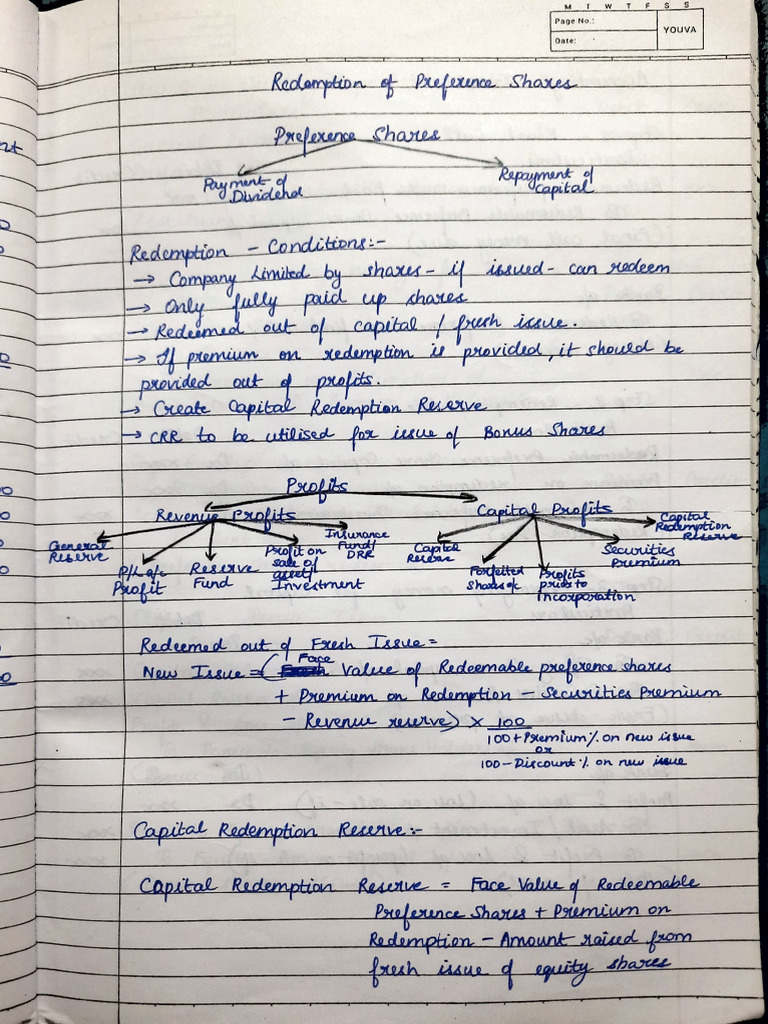 M T W T F S S
Page No.:
YOUVA
Date:
Redemption of Preference Shares
Preference Shares
Payment of
Dividend
Repayment of
Capital
Redemption - Conditions:-
→ Company Limited by shares - if issued - can redeem
→ Only fully paid up shares
→ Redeemed out of capital / fresh issue.
→ If premium on redemption is provided, it should be
provided out of profits.
→ Create Capital Redemption Reserve
→ CRR to be utilised for issue of Bonus Shares
Profits
Revenue Profits
Capital Profits
General
Reserve
P/L a/c
Profit
Reserve
Fund
Profit on
sale of
asset/
Investment
Insurance
Fund/
DRR
Capital
Reserve
Forfeited
shares a/c
Profits
prior to
Incorporation
Securities
Premium
Capital
Redemption
Reserve
Redeemed out of Fresh Issue =
New Issue = (Face Value of Redeemable preference shares
+ Premium on Redemption - Securities Premium
- Revenue reserve) × 100
100 + Premium% on new issue
or
100 - Discount% on new issue
Capital Redemption Reserve:-
Capital Redemption Reserve = Face Value of Redeemable
Preference Shares + Premium on
Redemption - Amount raised from
fresh issue of equity shares